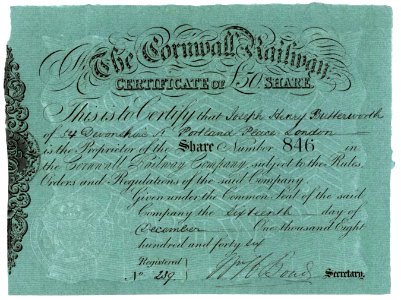 The Cornwall Railway.
CERTIFICATE OF £50 SHARE.
This is to Certify that Joseph Henry Butterworth
of 54 Devonshire St Portland Place London
is the Proprietor of the Share Number 846 in
the Cornwall Railway Company, subject to the Rules,
Orders and Regulations of the said Company
Given under the Common Seal of the said
Company the Sixteenth day of
December One thousand Eight
hundred and forty six
Registered
No 239. Wm H Bond Secretary.